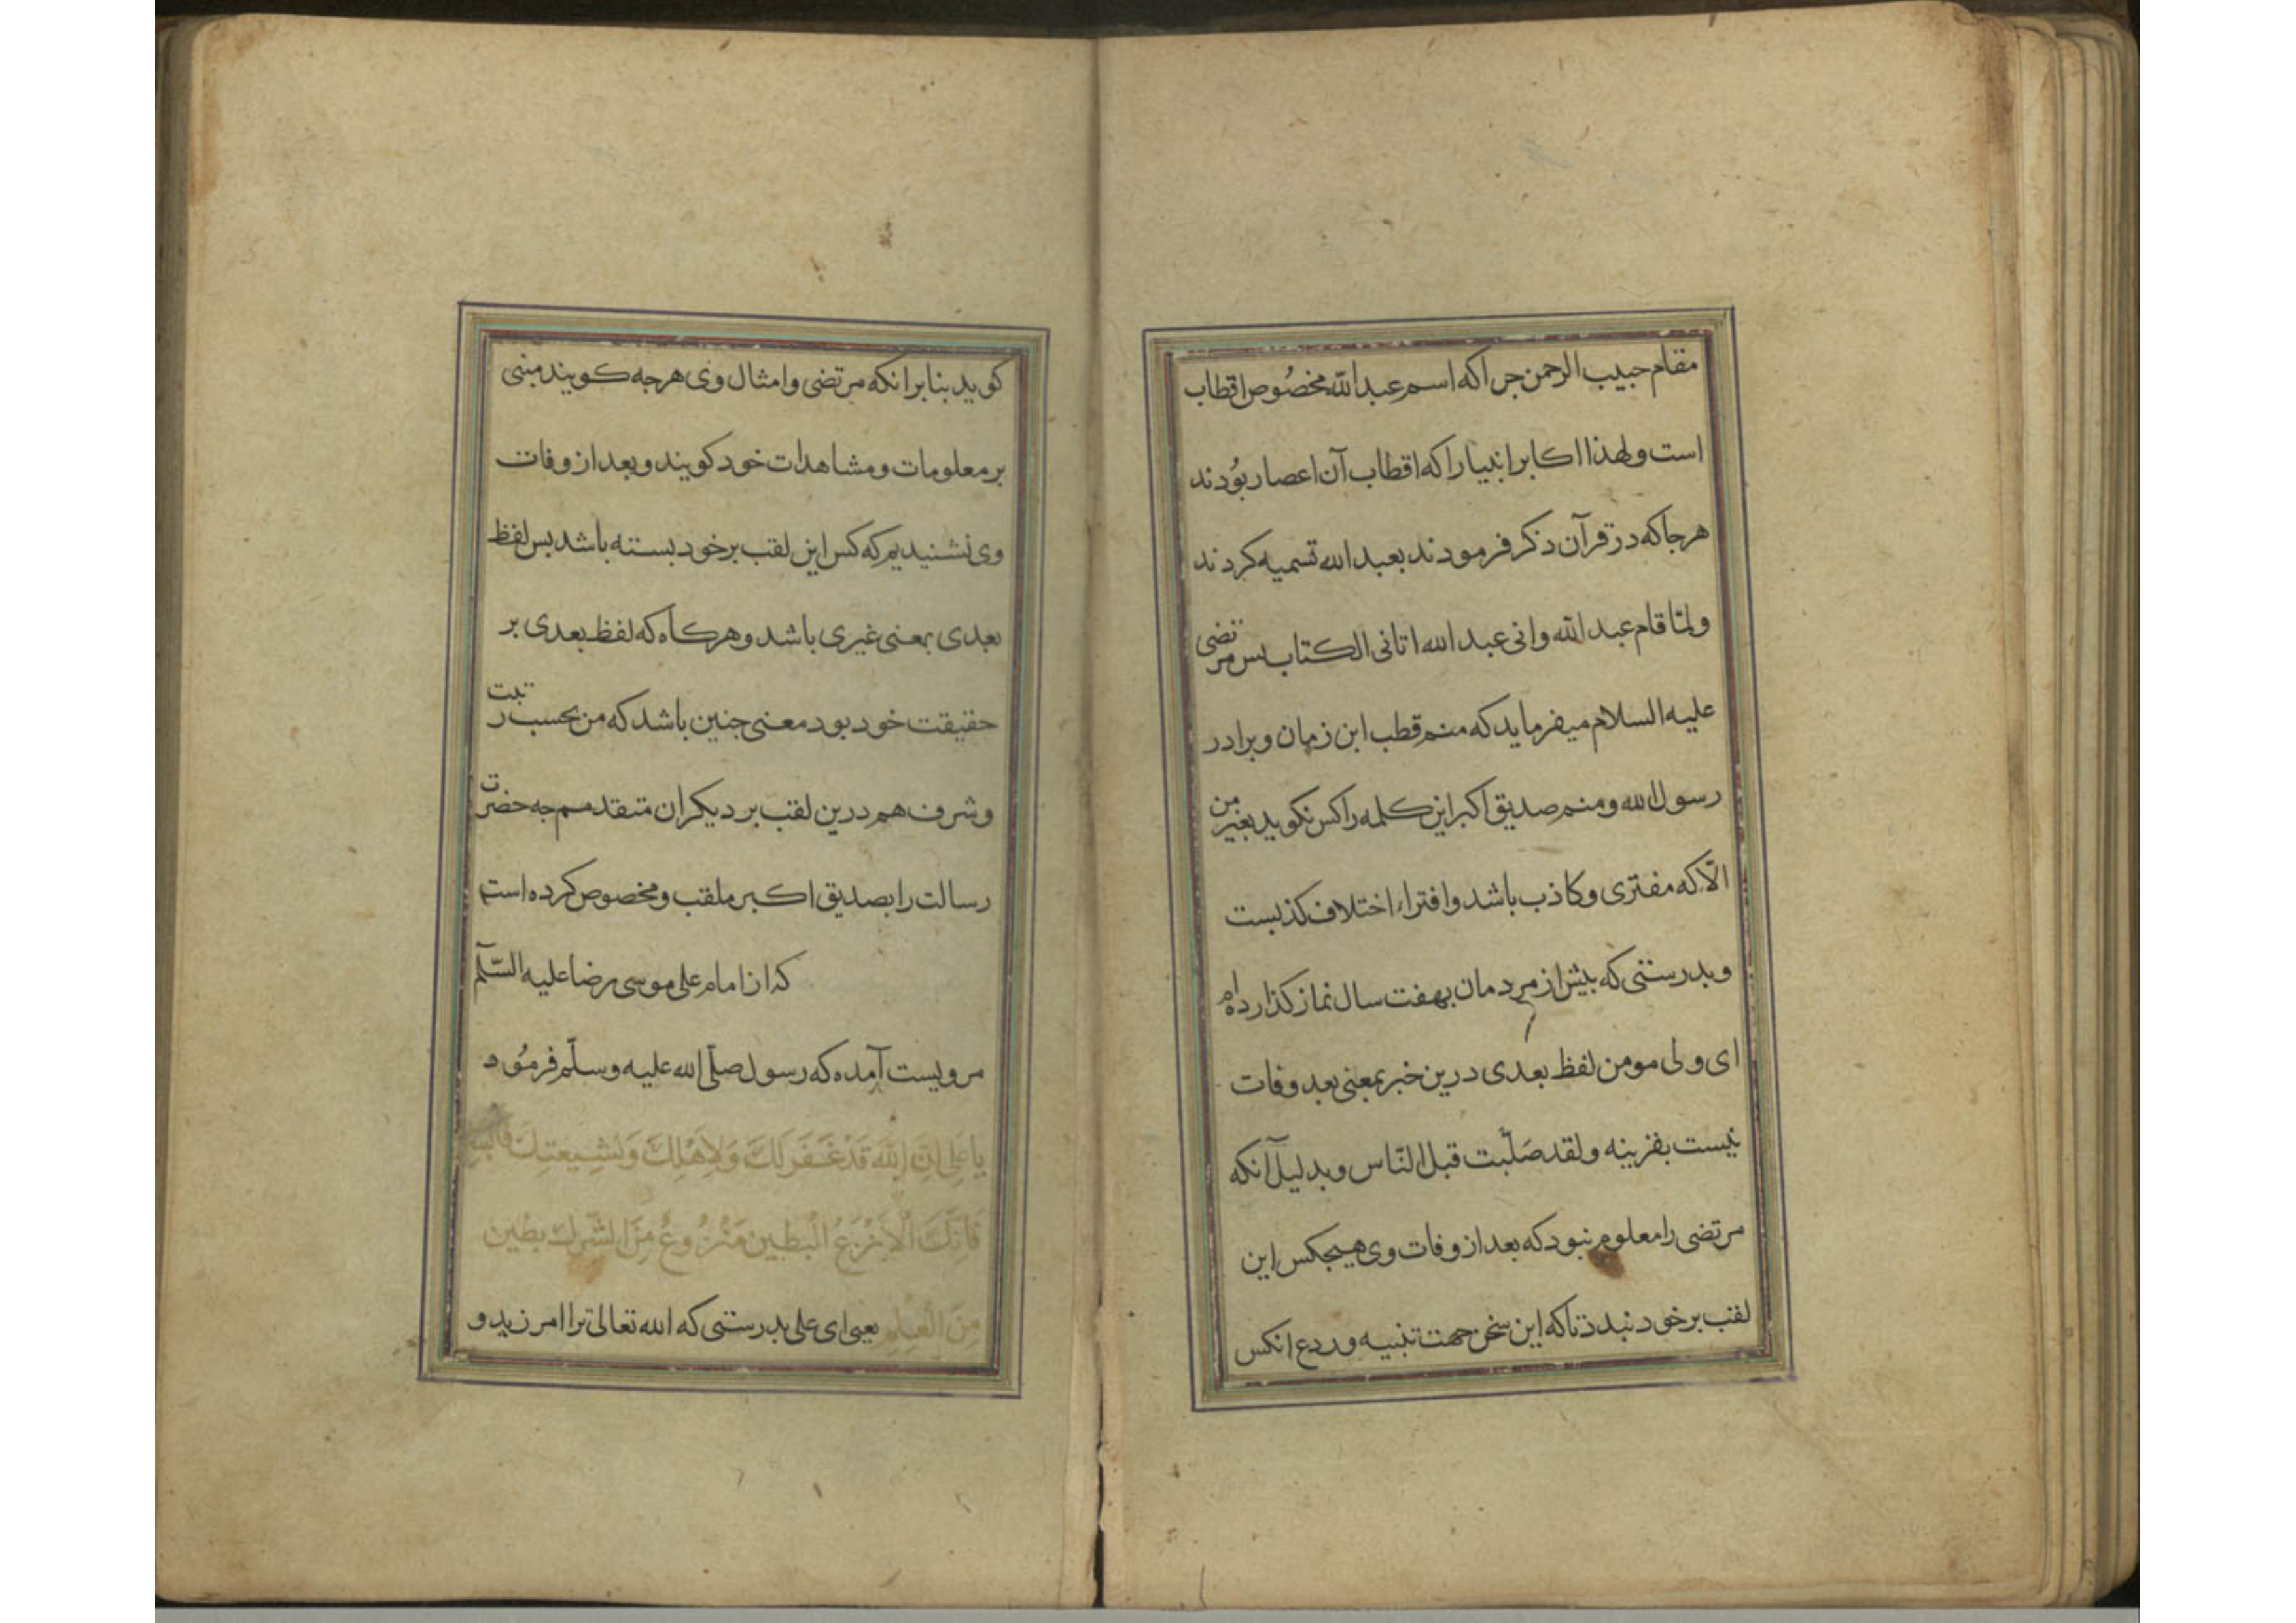 مقام حبیب الرحمن جراکه اسم عبدالله مخصُوص اقطاب
است ولهذا اکابر انبیا راکه اقطاب آن اعصار بوُدند
هرجاکه در قرآن ذکر فرمودند بعبد الله تسمیه کردند
ولمّا قام عبد الله وانی عبد الله اتانی الکتاب بس مرتضی
علیه السلام میفرماید که منم قطب این زمان وبرادر
رسول الله ومنم صدیق اکبر این کلمه را کس نکوید بغیر من
الّا که مفتری وکاذب باشد وافتراء اختلاف کذبست
وبدرستی که بیش از مردمان بهفت سال نماز کذارده‌ام
ای ولی مومن لفظ بعدی درین خبر بمعنی بعد وفات
نیست بقرینه ولقد صَلّیت قبل النّاس وبدلیل آنکه
مرتضی را معلوم نبود که بعد از وفات وی هیجکس این
لقب برخود نبندد تاکه این سخن جهت تنبیه وردع انکس
کوید بنابر انکه مرتضی وامثال وی هرجه کویند مبنی
بر معلومات ومشاهدات خود کویند وبعد از وفات
وی نشنیدیم که کس این لقب برخود بسته باشد بس لفظ
بعدی بمعنی غیری باشد وهرکاه که لفظ بعدی بر
حقیقت خود بود معنی جنین باشد که من بحسب رتبت
وشرف هم درین لقب بر دیکران متقدمم جه حضرت
رسالت را بصدیق اکبر ملقب ومخصوص کرده است
که از امام علی موسی رضا علیه السّلم
مرویست آمده که رسول صلّی الله علیه وسلّم فرموُد
یا عَلِی اِنَّ اللهَ قَدْ غَفَرَ لَكَ وَلِاَهْلِكَ وَلشِیعَتِكَ فَابْشِر
فَاِنَّكَ الْاَنْزَعُ الْبَطین مَنْزُوعُ مِنَ الشِّرك بَطین
مِنَ الْعِلمِ یعنی ای علی بدرستی که الله تعالی ترا امرزید و